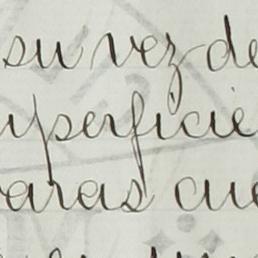 su vez de
uperficie
varas cua